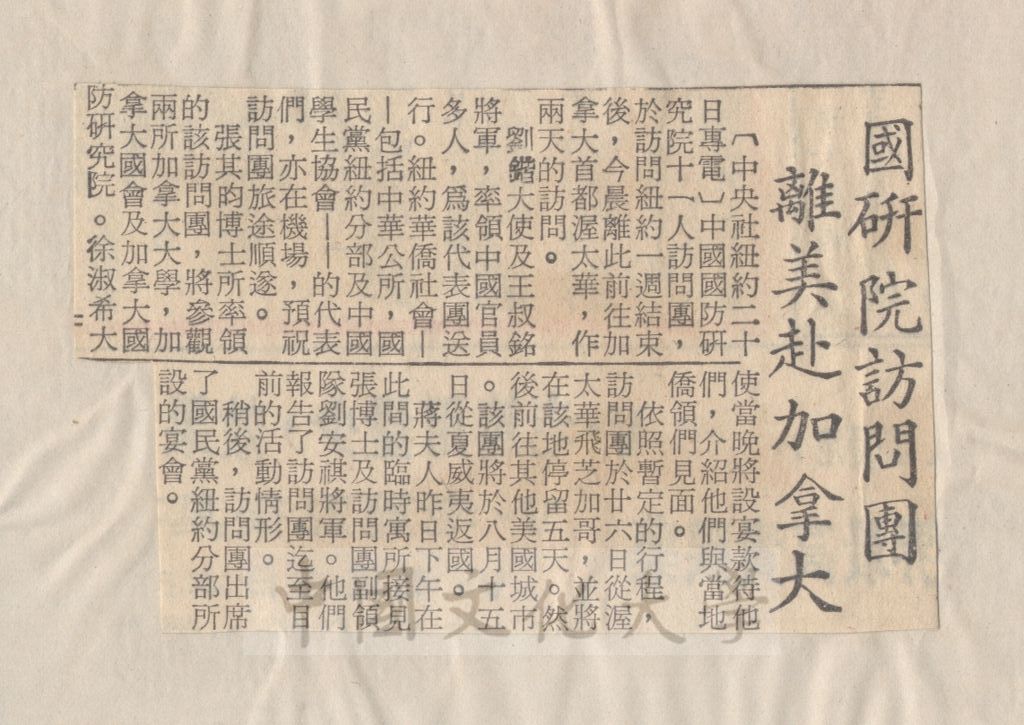 國研院訪問團
離美赴加拿大
〔中央社紐約二十
日專電〕中國國防研
究院十一人訪問團,
於訪問紐約一週結束
後,今晨離此前往加
拿大首都渥太華,作
兩天的訪問。
劉鍇大使及王叔銘
將軍,率領中國官員
多人,爲該代表團送
行。紐約華僑社會—
—包括中華公所,國
民黨紐約分部及中國
學生協會——的代表
們,亦在機場,預祝
訪問團旅途順遂。
張其昀博士所率領
的該訪問團,將參觀
兩所加拿大大學,加
拿大國會及加拿大國
防研究院。徐淑希大
使當晚將設宴款待他
們,介紹他們與當地
僑領們見面。
依照暫定的行程,
訪問團於廿六日從渥
太華飛芝加哥,並將
在該地停留五天。然
後前往其他美國城市
。該團將於八月十五
日從夏威夷返國。
蔣夫人昨日下午在
此間的臨時寓所接見
張博士及訪問團副領
隊劉安祺將軍。他們
報告了訪問團迄至目
前的活動情形。
稍後,訪問團出席
了國民黨紐約分部所
設的宴會。
中國文化大學